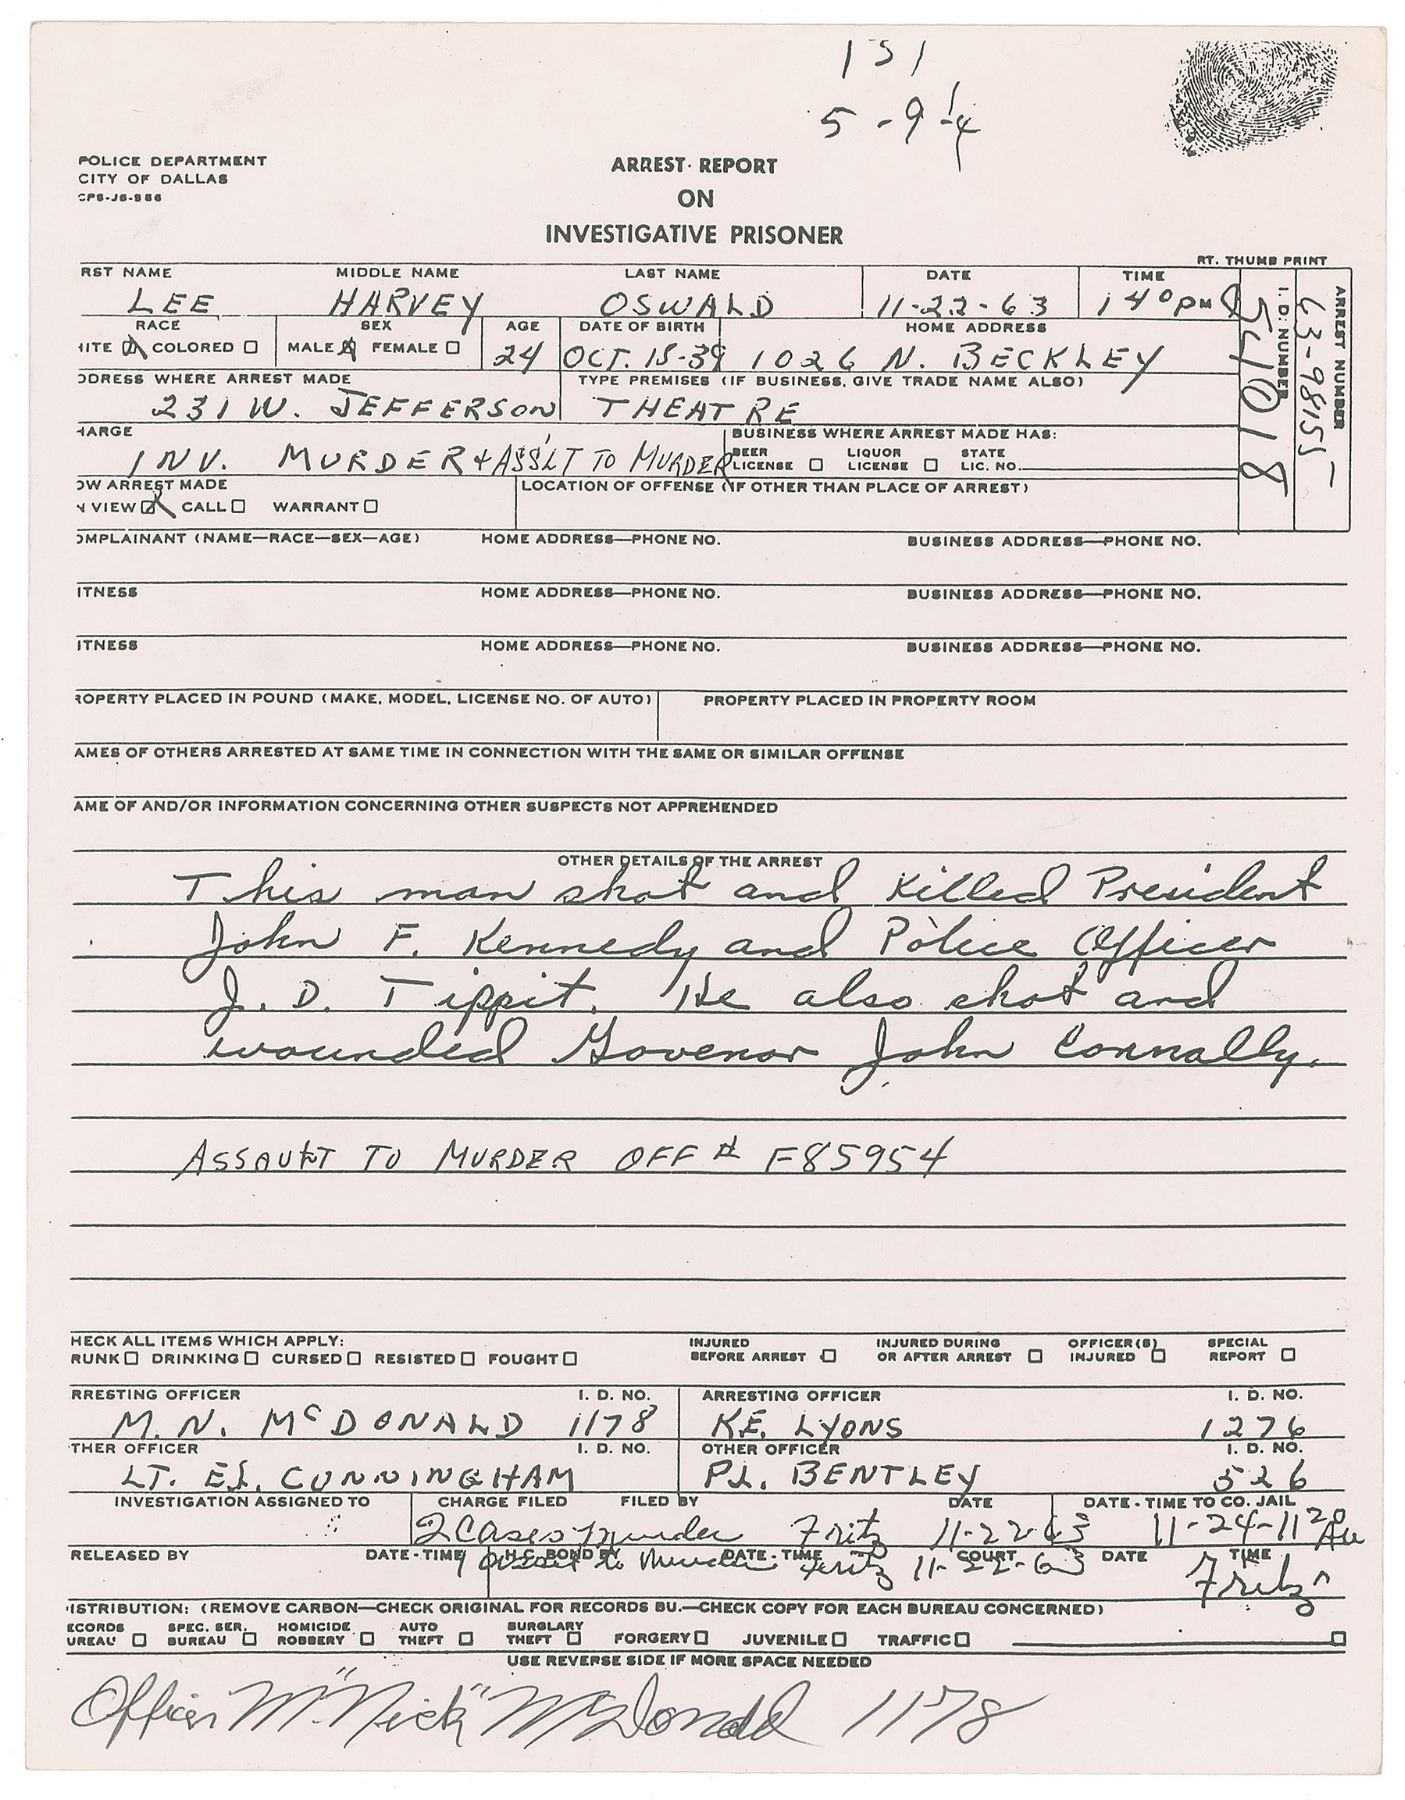 131
5-9 1/4
POLICE DEPARTMENT
CITY OF DALLAS
CPS-JS-966
ARREST REPORT
ON
INVESTIGATIVE PRISONER
RT. THUMB PRINT
RST NAME MIDDLE NAME LAST NAME DATE TIME
LEE HARVEY OSWALD 11-22-63 1 40 PM
I. D. NUMBER 54018
ARREST NUMBER 63-98155
RACE SEX AGE DATE OF BIRTH HOME ADDRESS
HITE COLORED MALE FEMALE 24 OCT. 18-39 1026 N. BECKLEY
DDRESS WHERE ARREST MADE TYPE PREMISES (IF BUSINESS, GIVE TRADE NAME ALSO)
231 W. JEFFERSON THEATRE
HARGE BUSINESS WHERE ARREST MADE HAS:
INV. MURDER & ASS'LT TO MURDER BEER LICENSE LIQUOR LICENSE STATE LIC. NO.
OW ARREST MADE LOCATION OF OFFENSE (IF OTHER THAN PLACE OF ARREST)
N VIEW CALL WARRANT
OMPLAINANT (NAME—RACE—SEX—AGE) HOME ADDRESS—PHONE NO. BUSINESS ADDRESS—PHONE NO.
ITNESS HOME ADDRESS—PHONE NO. BUSINESS ADDRESS—PHONE NO.
ITNESS HOME ADDRESS—PHONE NO. BUSINESS ADDRESS—PHONE NO.
ROPERTY PLACED IN POUND (MAKE, MODEL, LICENSE NO. OF AUTO) PROPERTY PLACED IN PROPERTY ROOM
AMES OF OTHERS ARRESTED AT SAME TIME IN CONNECTION WITH THE SAME OR SIMILAR OFFENSE
AME OF AND/OR INFORMATION CONCERNING OTHER SUSPECTS NOT APPREHENDED
OTHER DETAILS OF THE ARREST
This man shot and killed President
John F. Kennedy and Police Officer
J. D. Tippit. He also shot and
wounded Govenor John Connally.
ASSAULT TO MURDER OFF # F85954
HECK ALL ITEMS WHICH APPLY:
RUNK DRINKING CURSED RESISTED FOUGHT INJURED BEFORE ARREST INJURED DURING OR AFTER ARREST OFFICER(S) INJURED SPECIAL REPORT
RRESTING OFFICER I. D. NO. ARRESTING OFFICER I. D. NO.
M. N. McDONALD 1178 K.E. LYONS 1276
THER OFFICER I. D. NO. OTHER OFFICER I. D. NO.
LT. E.L. CUNNINGHAM P.L. BENTLEY 526
INVESTIGATION ASSIGNED TO CHARGE FILED FILED BY DATE DATE - TIME TO CO. JAIL
2 Cases Murder Fritz 11-22-63 11-24-11 20 AM
RELEASED BY DATE - TIME H.C. BOND BY DATE - TIME COURT DATE TIME
1 Assault to Murder Fritz 11-22-63 Fritz
ISTRIBUTION: (REMOVE CARBON—CHECK ORIGINAL FOR RECORDS BU.—CHECK COPY FOR EACH BUREAU CONCERNED)
ECORDS UREAU SPEC. SER. BUREAU HOMICIDE ROBBERY AUTO THEFT BURGLARY THEFT FORGERY JUVENILE TRAFFIC
USE REVERSE SIDE IF MORE SPACE NEEDED
Officer M. "Nick" McDonald 1178